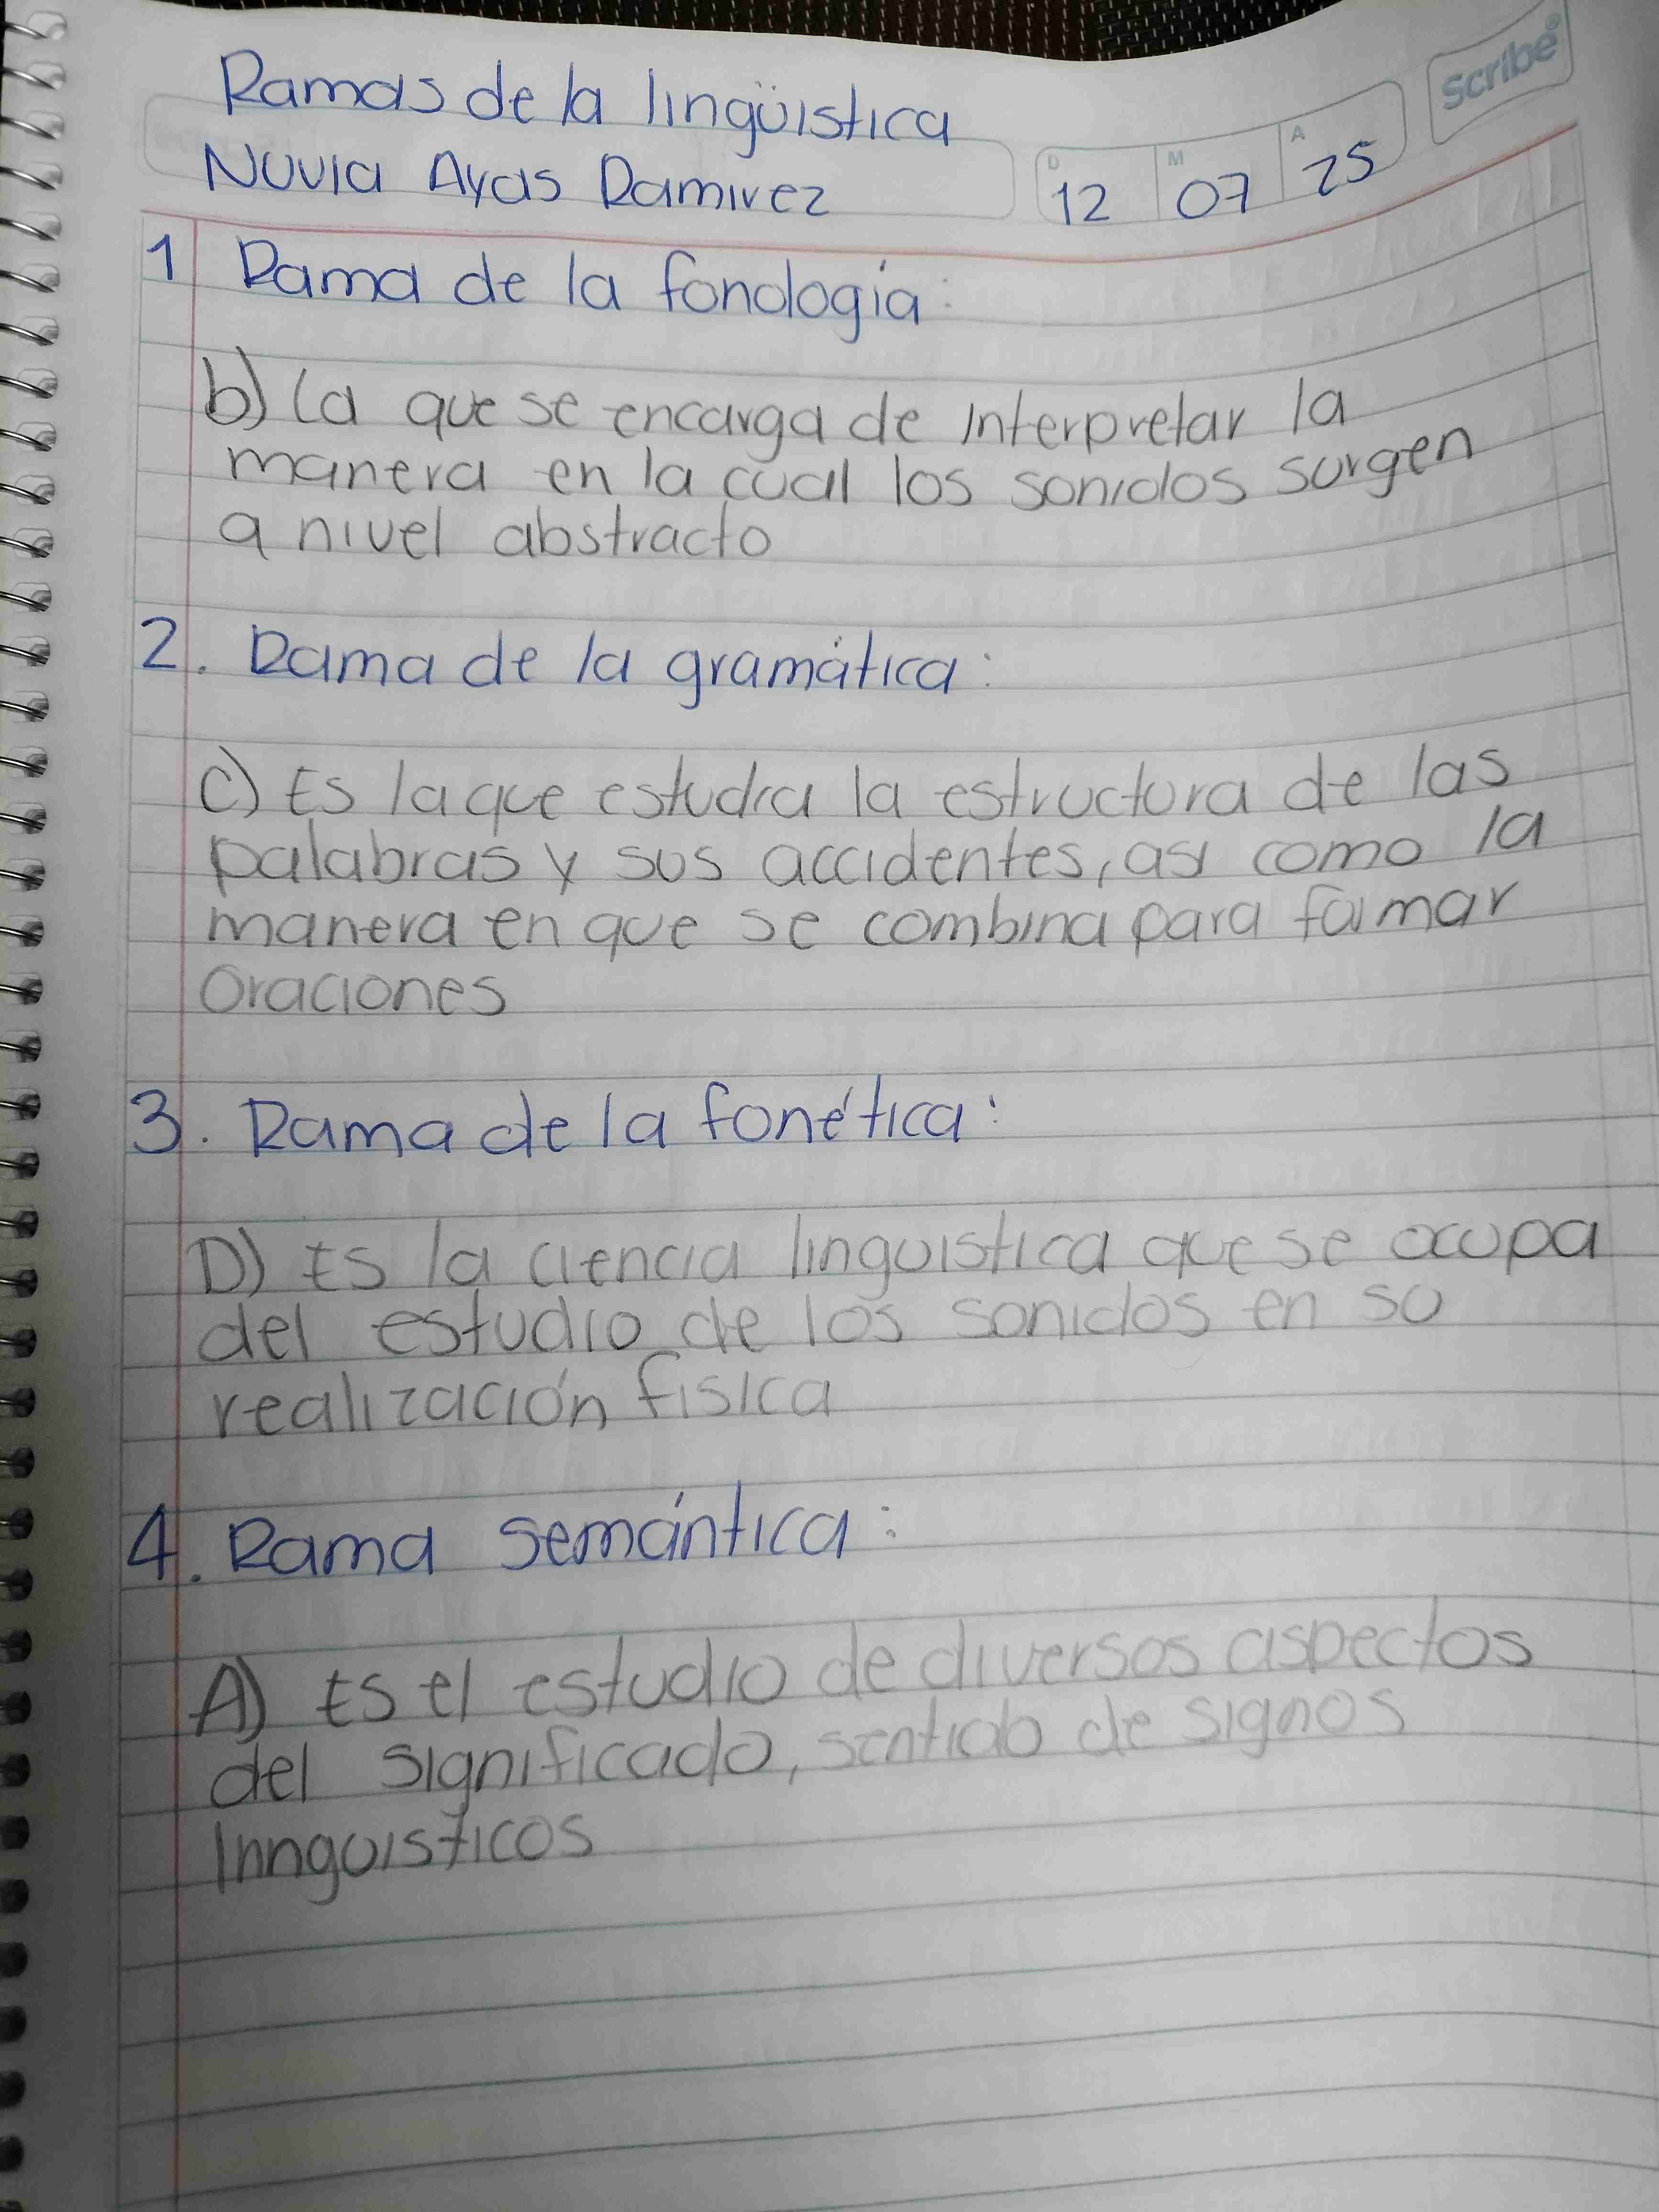 Scribe®
Ramas de la lingüistica
Nuvia Ayas Ramirez
D 12 M 07 A 25
1 Rama de la fonología:
b) La que se encarga de interpretar la
manera en la cual los sonidos surgen
a nivel abstracto
2. Rama de la gramática:
c) Es la que estudia la estructura de las
palabras y sus accidentes, asi como la
manera en que se combina para formar
oraciones
3. Rama de la fonética:
D) Es la ciencia linguistica que se ocupa
del estudio de los sonidos en su
realización fisica
4. Rama semántica:
A) Es el estudio de diversos aspectos
del significado, sentido de signos
linnguisticos